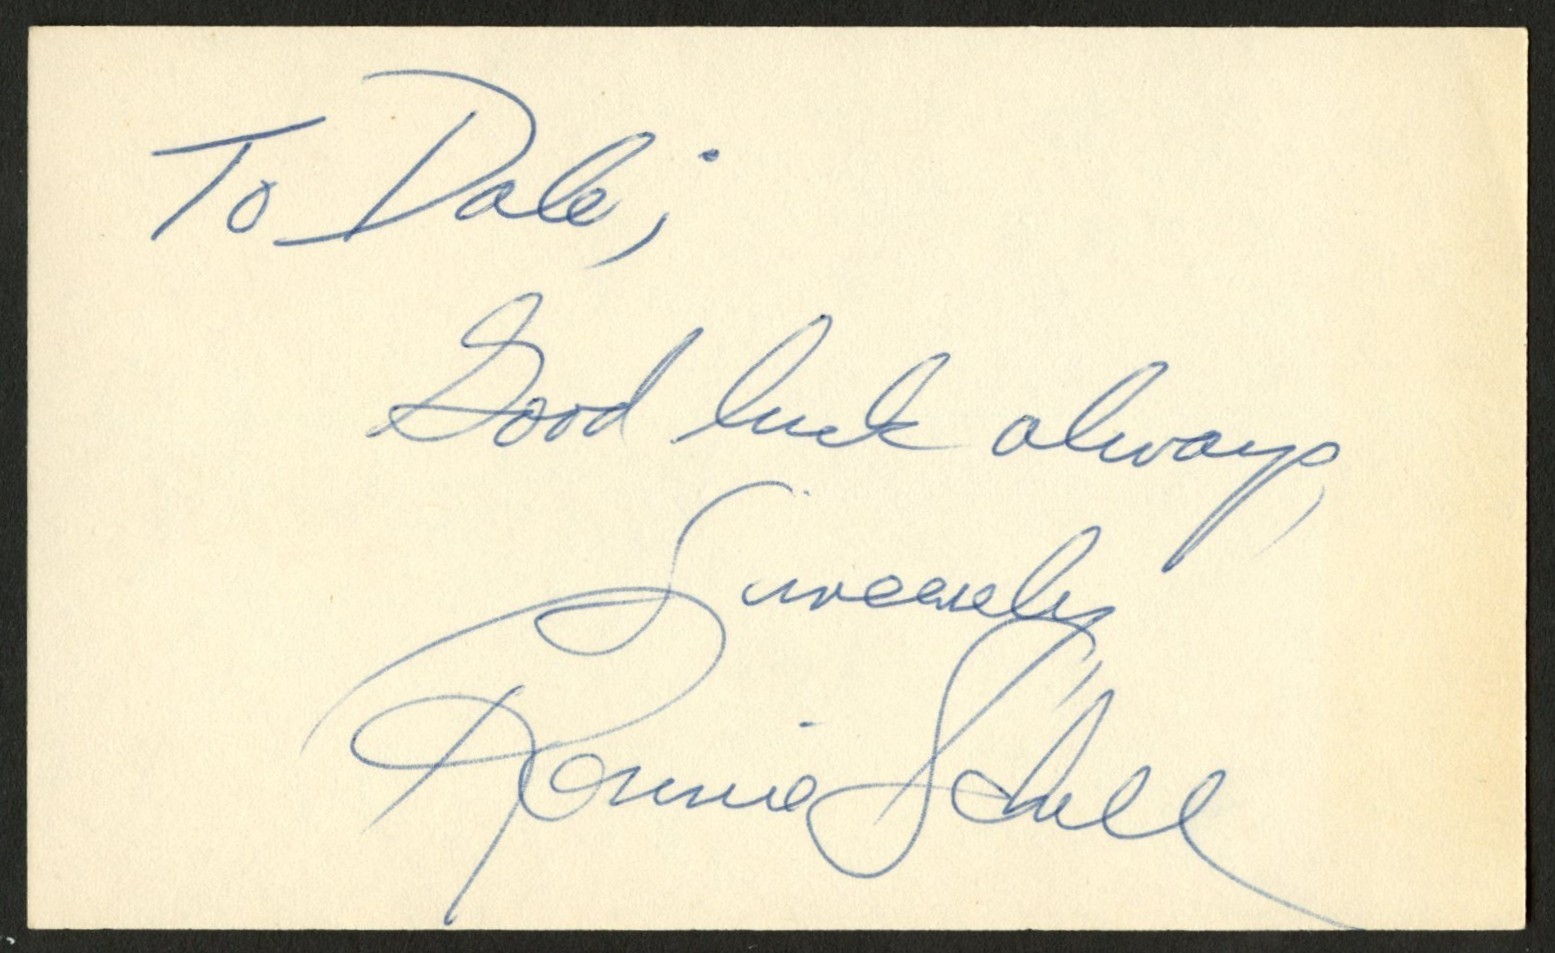 To Dale;
Good luck always,
Sincerely
Ronnie Schell